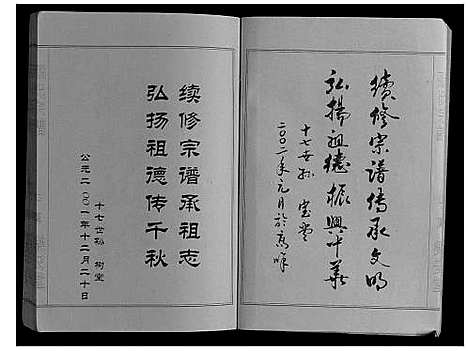 續修宗谱传承文明
弘揚祖德振興中华
十七世孙 宝
二〇〇二年元月於
续修宗谱承祖志
弘扬祖德传千秋
十七世孙 树堂
公元二〇〇一年十二月二十日